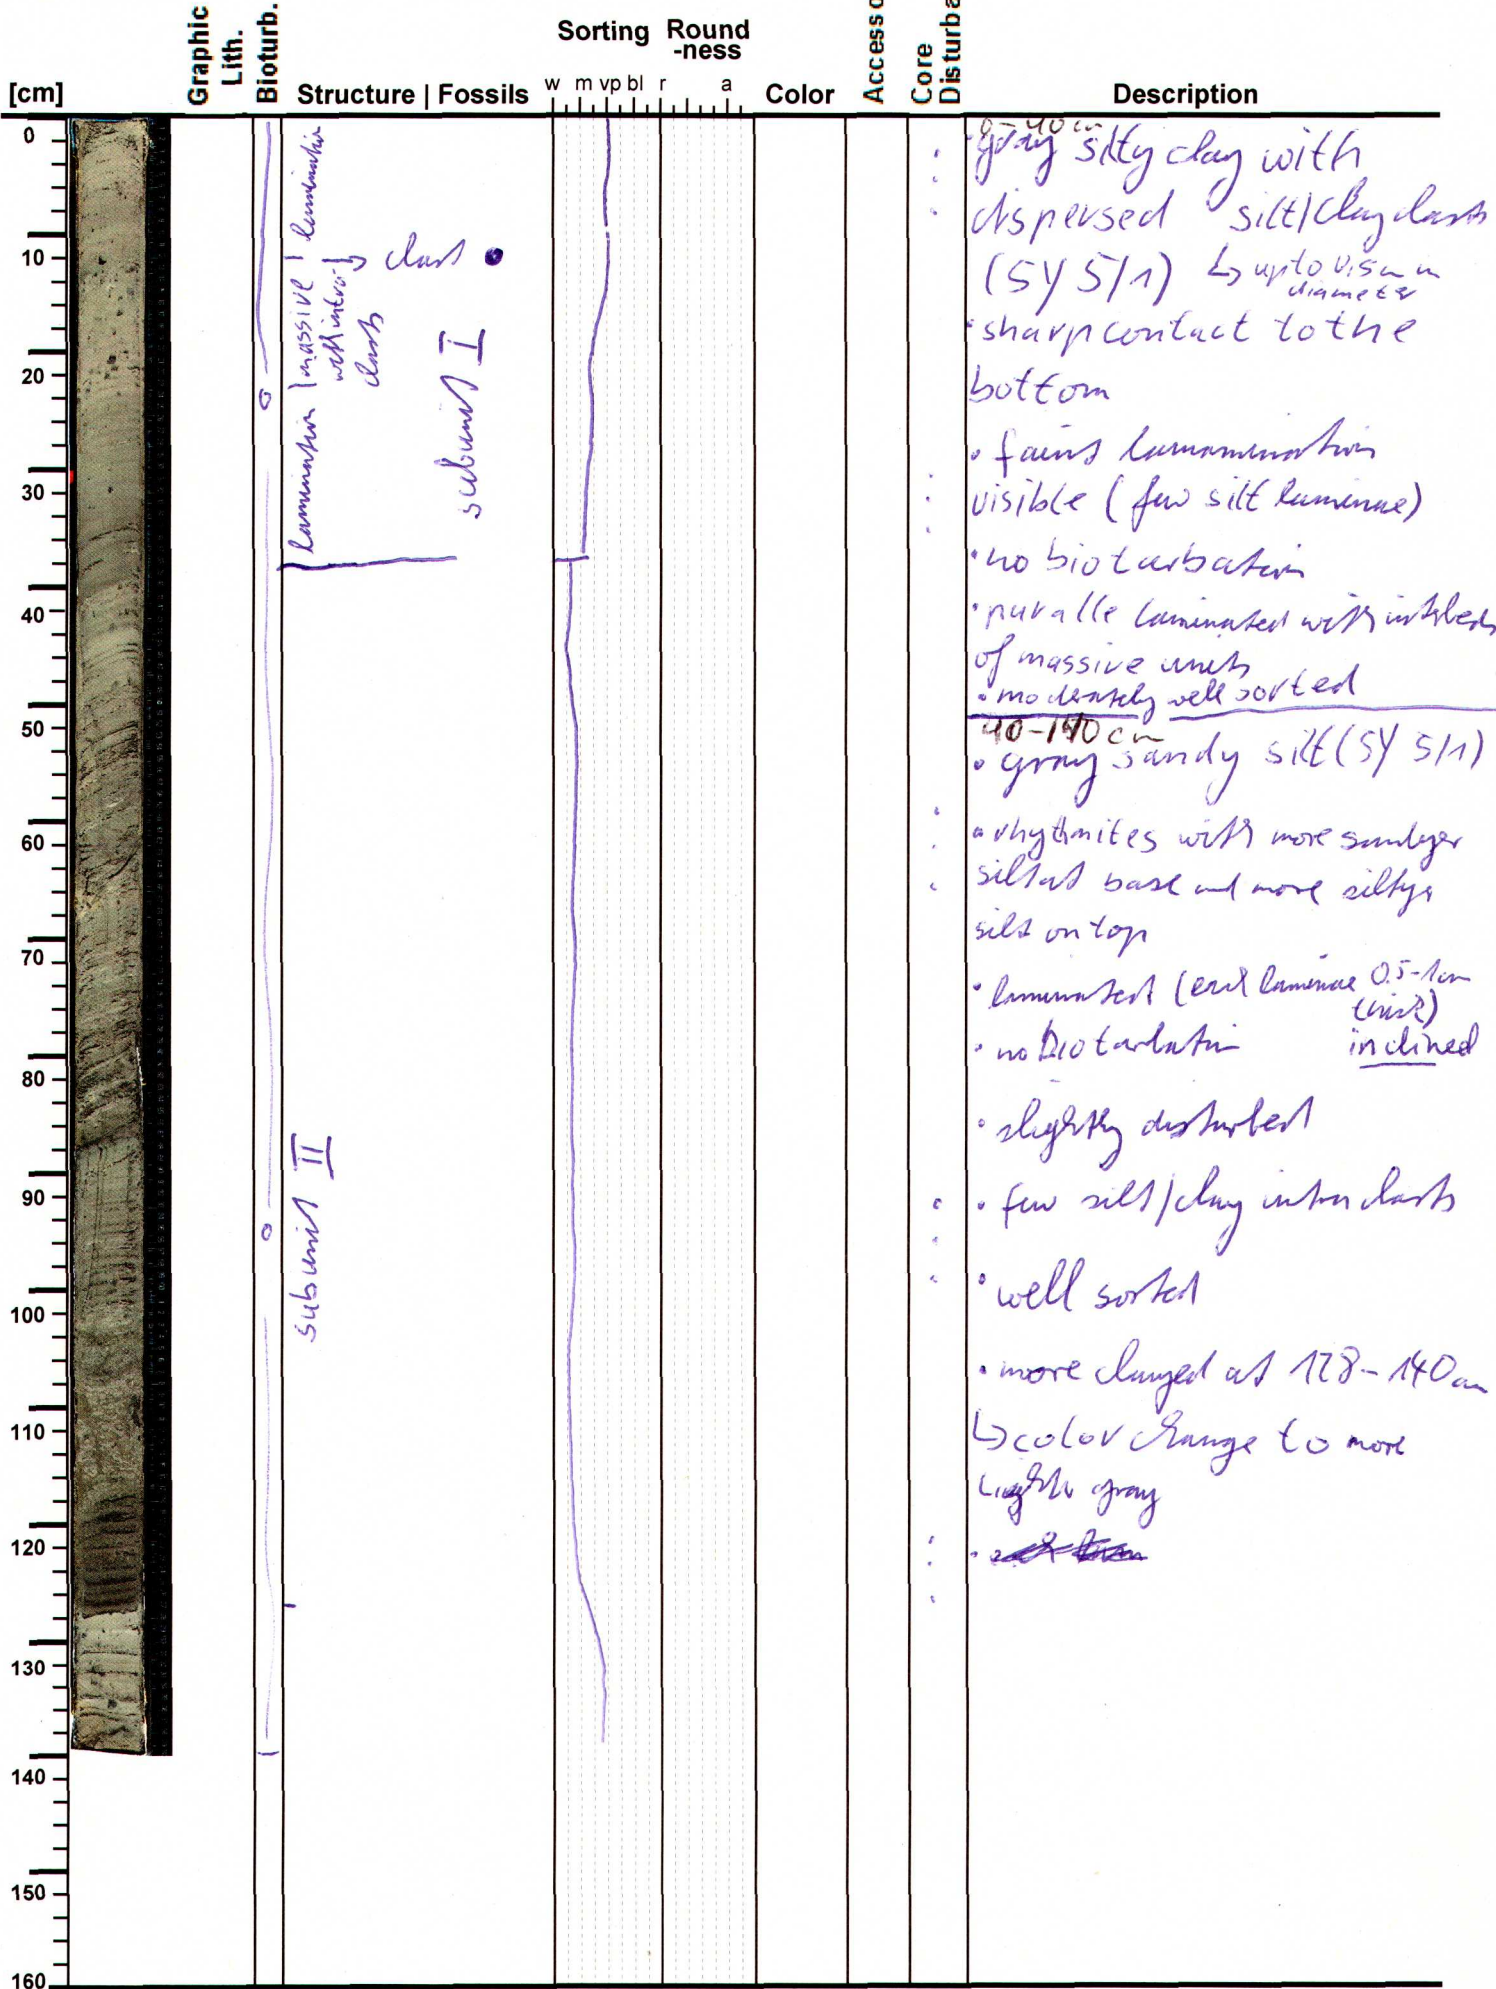 Graphic
Lith.
Bioturb.
Sorting Round
-ness
Accesso
Core
Disturba
w m vp bl r a
[cm] Structure | Fossils Color Description
0
10
20
30
40
50
60
70
80
90
100
110
120
130
140
150
160
lamination
massive
with intra
clasts
lamination
clast
subunit I
subunit II
0-40 cm
gray silty clay with
dispersed silt/clay clasts
(5Y 5/1) ↳ up to
diameter
• sharp contact to the
bottom
• faint lamamination
visible (few silt laminae)
• no bioturbation
• paralle laminated with interbeds
of massive units
• moderately well sorted
40-140 cm
• gray sandy silt (5Y 5/1)
• rhythmites with more sandyer
silt at base and more siltyer
silt on top
• laminated ( laminae 0.5-1cm
thick)
• no bioturbation inclined
• slightly disturbed
• few silt/clay intra clasts
• well sorted
• more clayed at 128-140 cm
↳ color change to more
gray